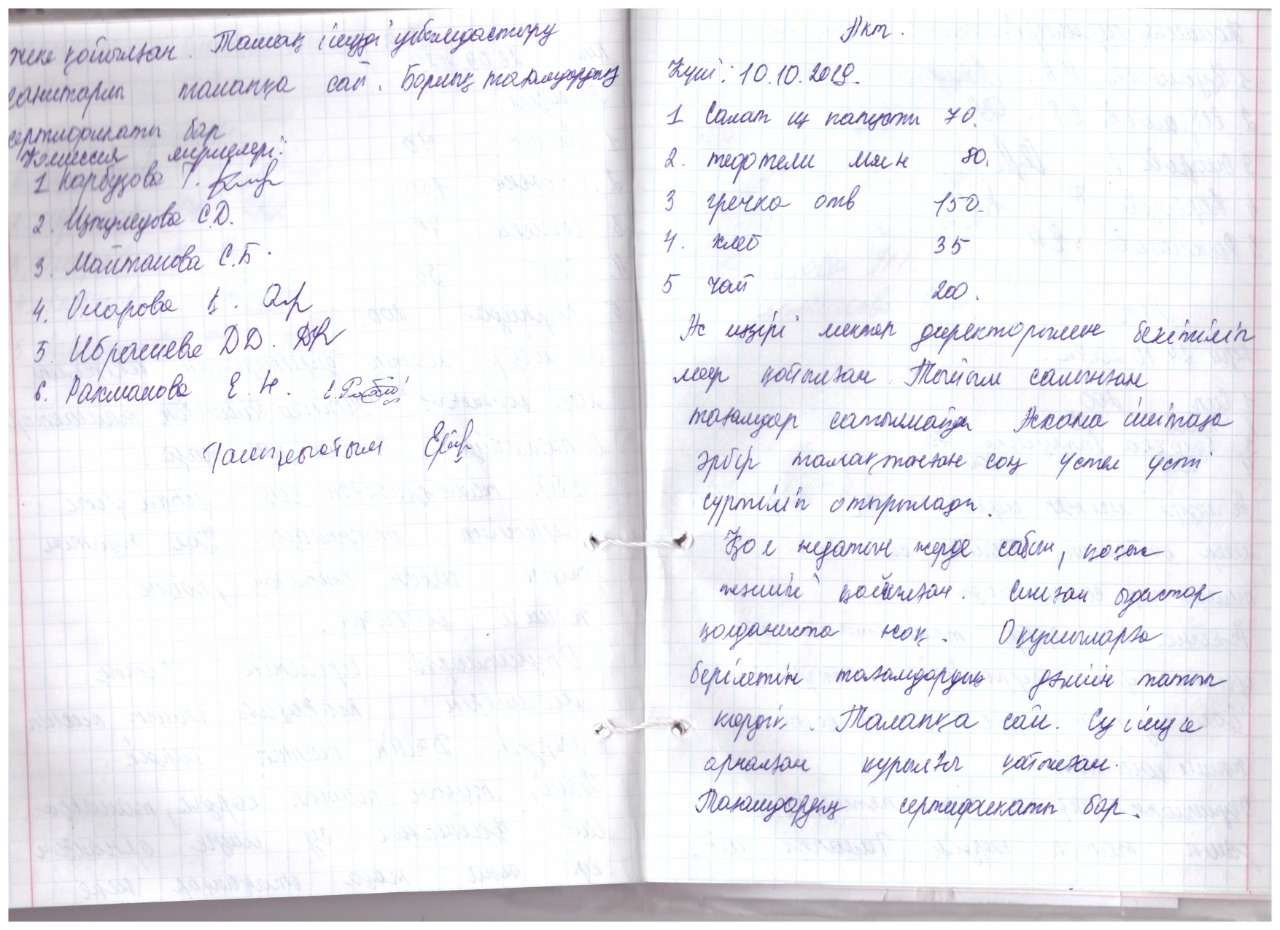 жеке қойылған. Тамақ ішуді ұйымдастыру
санитарлы талапқа сай. Барлық тағамдардың
сертификаты бар
Комиссия мүшелері:
1 Карбузова Г.
2. Изтулеуова С.Д.
3. Майтанова С.Б.
4. Омарова
5. Ибрашева Д.Д.
6. Рахманова Е.Н.
Таныстым
Акт.
Күні: 10.10.2019.
1 Салат из капусты 70.
2. тефтели мясн 80.
3 гречка отв 150.
4. хлеб 35
5 чай 200.
Ас мәзірі мектеп директорымен бекітіліп
мөр қойылған. Тыйым салынған
тағамдар сатылмайды. Асхана ішi таза
әрбір тамақтанған соң үстел үсті
сүртіліп отырылады.
Қол жуатын жерде сабын, қағаз
қойылған. Сынған ыдыстар
қолданыста жоқ. Оқушыларға
берілетін тағамдардың дәмін татып
көрдік. Талапқа сай. Су ішуге
арналған құрылғы қойылған.
Тағамдардың сертификаты бар.